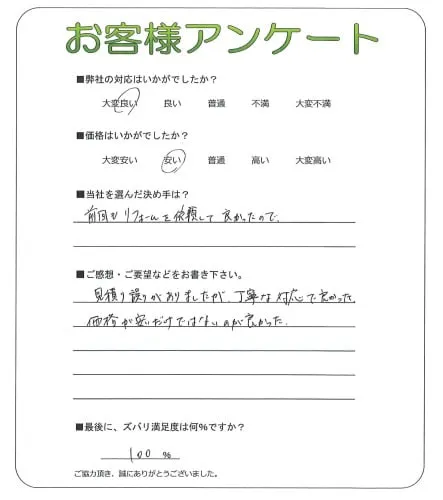 お客様アンケート
■弊社の対応はいかがでしたか？
大変良い 良い 普通 不満 大変不満
■価格はいかがでしたか？
大変安い 安い 普通 高い 大変高い
■当社を選んだ決め手は？
前回もリフォームを依頼して良かったので、
■ご感想・ご要望などをお書き下さい。
見積り誤りがありましたが、丁寧な対応で良かった。
価格が安いだけではないのが良かった。
■最後に、ズバリ満足度は何％ですか？
100 %
ご協力頂き、誠にありがとうございました。